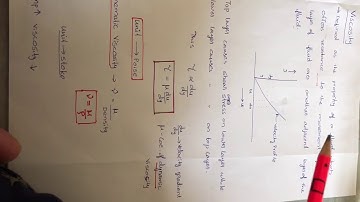 Viscosity
defined as the property of a
offers resistance to the movement of
layer of fluid over another adjacent layer of the
fluid.
velocity Profile
Top layer causes shear stress on lower layer while
lower layer causes " " on top layer.
Thus τ ∝ du/dy
τ = μ du/dy
du/dy → velocity gradient
μ - Coe of dynamic
viscosity
unit → Poise
Kinematic Viscosity → ν = μ/density
ν = μ/ρ
unit → stoke
viscosity ↓